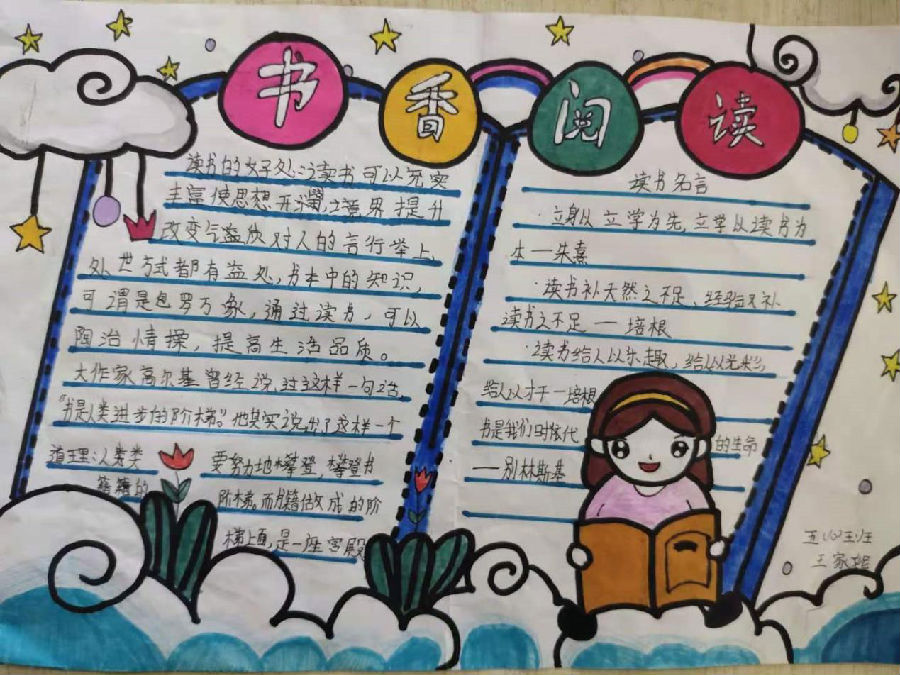 书香阅读
读书的好处:读书可以充实
丰富使思想开阔,境界提升
改变气盗欣对人的言行举上
处世方式都有益处,书本中的知识,
可谓是包罗万象,通过读书,可以
陶治情操,提高生活品质。
大作家高尔基曾经说过这样一句话,
"书是人类进步的阶梯"。他其实说出了这样一个
道理:人类类
要努力地攀登,攀登书
籍籍的
阶梯。而书籍做成的阶
梯上面,是一座宫殿
读书名言
·立身以立学为先,立学以读书为
本一朱熹
·读书补天然之不足、经验又补
读书之不足一培根
·读书给人以乐趣,给人以光彩
给人以才干一培根
书是我们时代
的生命
——别林斯基
王家